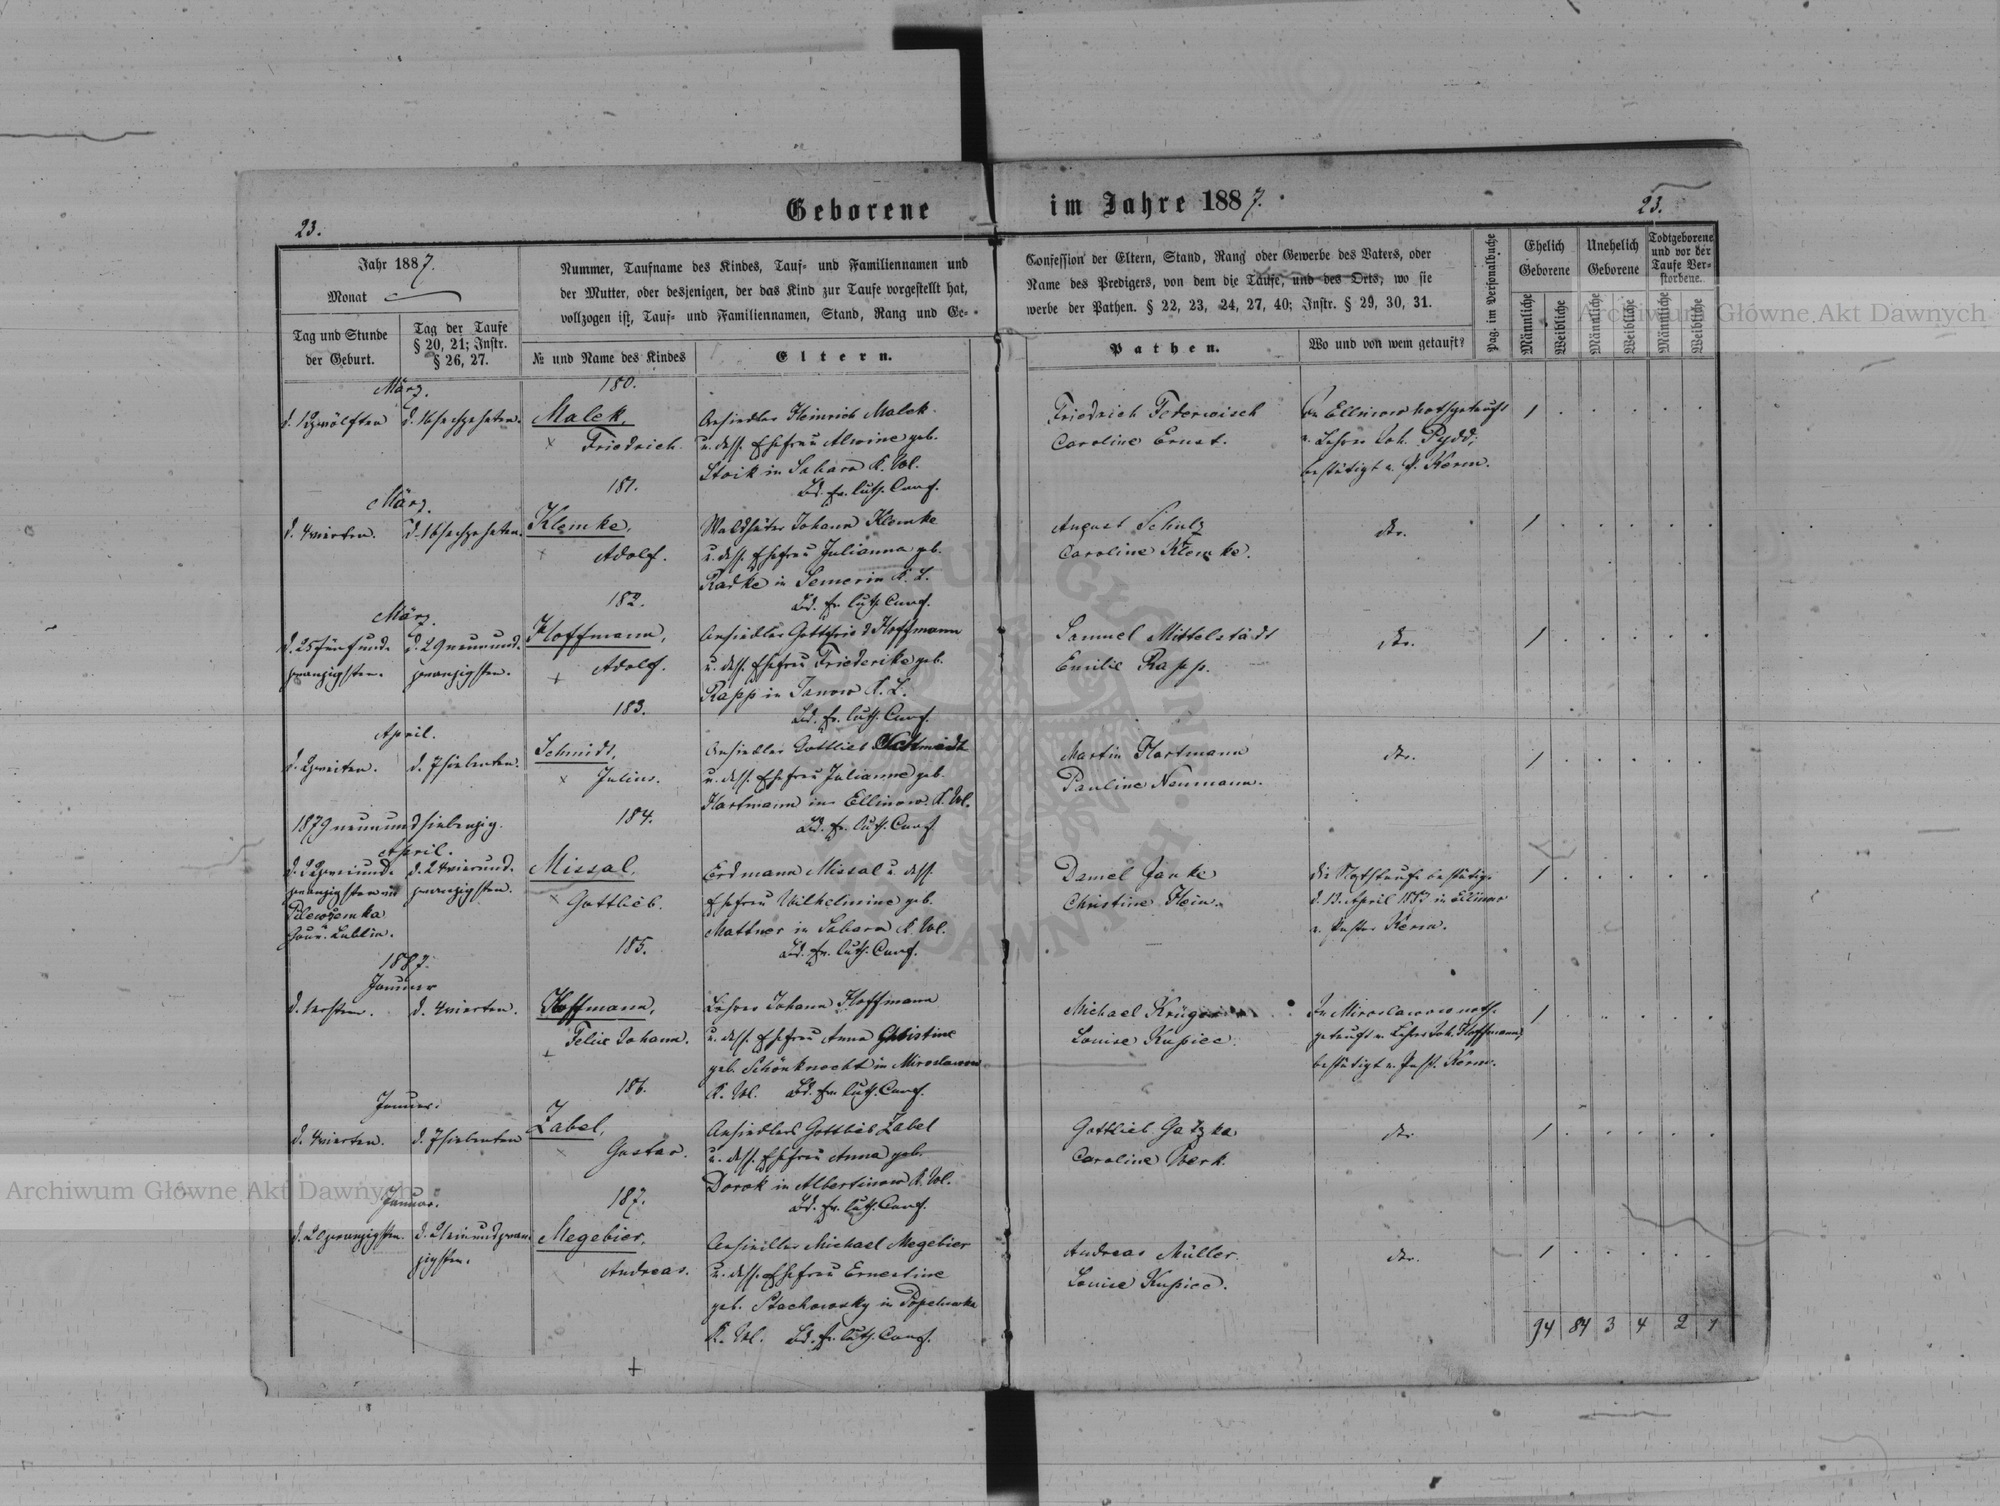 Geborene im Jahre 1887.
23.
23.
Jahr 1887.
Monat
Tag und Stunde
der Geburt.
Tag der Taufe
§ 20, 21; Instr.
§ 26, 27.
Nummer, Taufname des Kindes, Tauf- und Familiennamen und
der Mutter, oder desjenigen, der das Kind zur Taufe vorgestellt hat,
vollzogen ist, Tauf- und Familiennamen, Stand, Rang und Ge-
№ und Name des Kindes
Eltern.
Confession der Eltern, Stand, Rang oder Gewerbe des Vaters, oder
Name des Predigers, von dem die Taufe, und des Orts, wo sie
werbe der Pathen. § 22, 23, 24, 27, 40; Instr. § 29, 30, 31.
Pathen.
Wo und von wem getauft?
Pag. im Personalbuche
Ehelich
Geborene
Unehelich
Geborene
Todtgeborene
und vor der
Taufe Ver-
storbene.
Männliche
Weibliche
Männliche
Weibliche
Männliche
Weibliche
März.
180.
d. 12 zwölften
d. 16 sechzehnten.
Malek,
Friedrich.
Ansiedler Heinrich Malek
u. dess. Ehefrau Alwine geb.
Stoik in Sahara K. Wl.
Bd. ev. luth. Conf.
Friedrich Federwisch
Caroline Ernst.
In Ellinow nothgetauft
v. Lehrer Joh. Pydd;
bestätigt v. P. Kerm.
1
März.
181.
d. 4 vierten.
d. 16 sechzehnten.
Klemke,
Adolf.
Waldhüter Johann Klemke
u. dess. Ehefrau Julianna geb.
Radke in Semerin K. L.
Bd. ev. luth. Conf.
August Schulz
Caroline Klemke.
dto.
1
März.
182.
d. 25 fünfund-
zwanzigsten.
d. 29 neunund-
zwanzigsten.
Hoffmann,
Adolf.
Ansiedler Gottfried Hoffmann
u. dess. Ehefrau Friederike geb.
Rapp in Janow K. L.
Bd. ev. luth. Conf.
Samuel Mittelstädt
Emilie Rapp.
dto.
1
April.
183.
d. 2 zweiten.
d. 7 siebenten.
Schmidt,
Julius.
Ansiedler Gottlieb Schmidt
u. dess. Ehefrau Julianne geb.
Hartmann in Ellinow. K. Wl.
Bd. ev. luth. Conf.
Martin Hartmann
Pauline Neumann.
dto.
1
1879 neunundsiebenzig.
April.
184.
d. 22 zweiund-
zwanzigsten in
Gouv. Lublin.
d. 24 vierund-
zwanzigsten.
Missal,
Gottlieb.
Erdmann Missal u. dess.
Ehefrau Wilhelmine geb.
Mattner in Sahara K. Wl.
Bd. ev. luth. Conf.
Daniel Janke
Christine Hein.
die Nothtaufe bestätigt
d. 13. April 1887 in Ellinow
v. Pastor Kerm.
1
1887.
Januar
185.
d. 1 ersten.
d. 4 vierten.
Hoffmann,
Felix Johann.
Lehrer Johann Hoffmann
u. dess. Ehefrau Anna Christine
geb. Schönknecht in Miroslawow
K. Wl. Bd. ev. luth. Conf.
Michael
Louise Kupiec.
In Miroslawow noth-
getauft v. Lehrer Joh. Hoffmann;
bestätigt v. Past. Kerm.
1
Januar.
186.
d. 4 vierten.
d. 7 siebenten
Zabel,
Gustav.
Ansiedler Gottlieb Zabel
u. dess. Ehefrau Anna geb.
Dorok in Albertinow K. Wl.
Bd. ev. luth. Conf.
Gottlieb Gatzke
Caroline Werk.
dto.
1
Januar.
187.
d. 20 zwanzigsten.
d. 21 einundzwan-
zigsten.
Megebier,
Andreas.
Ansiedler Michael Megebier
u. dess. Ehefrau Ernestine
geb. Stachowsky in
K. Wl. Bd. ev. luth. Conf.
Andreas Müller.
Louise Kupiec.
dto.
1
94 84 3 4 2 1
Archiwum Główne Akt Dawnych
Archiwum Główne Akt Dawnych